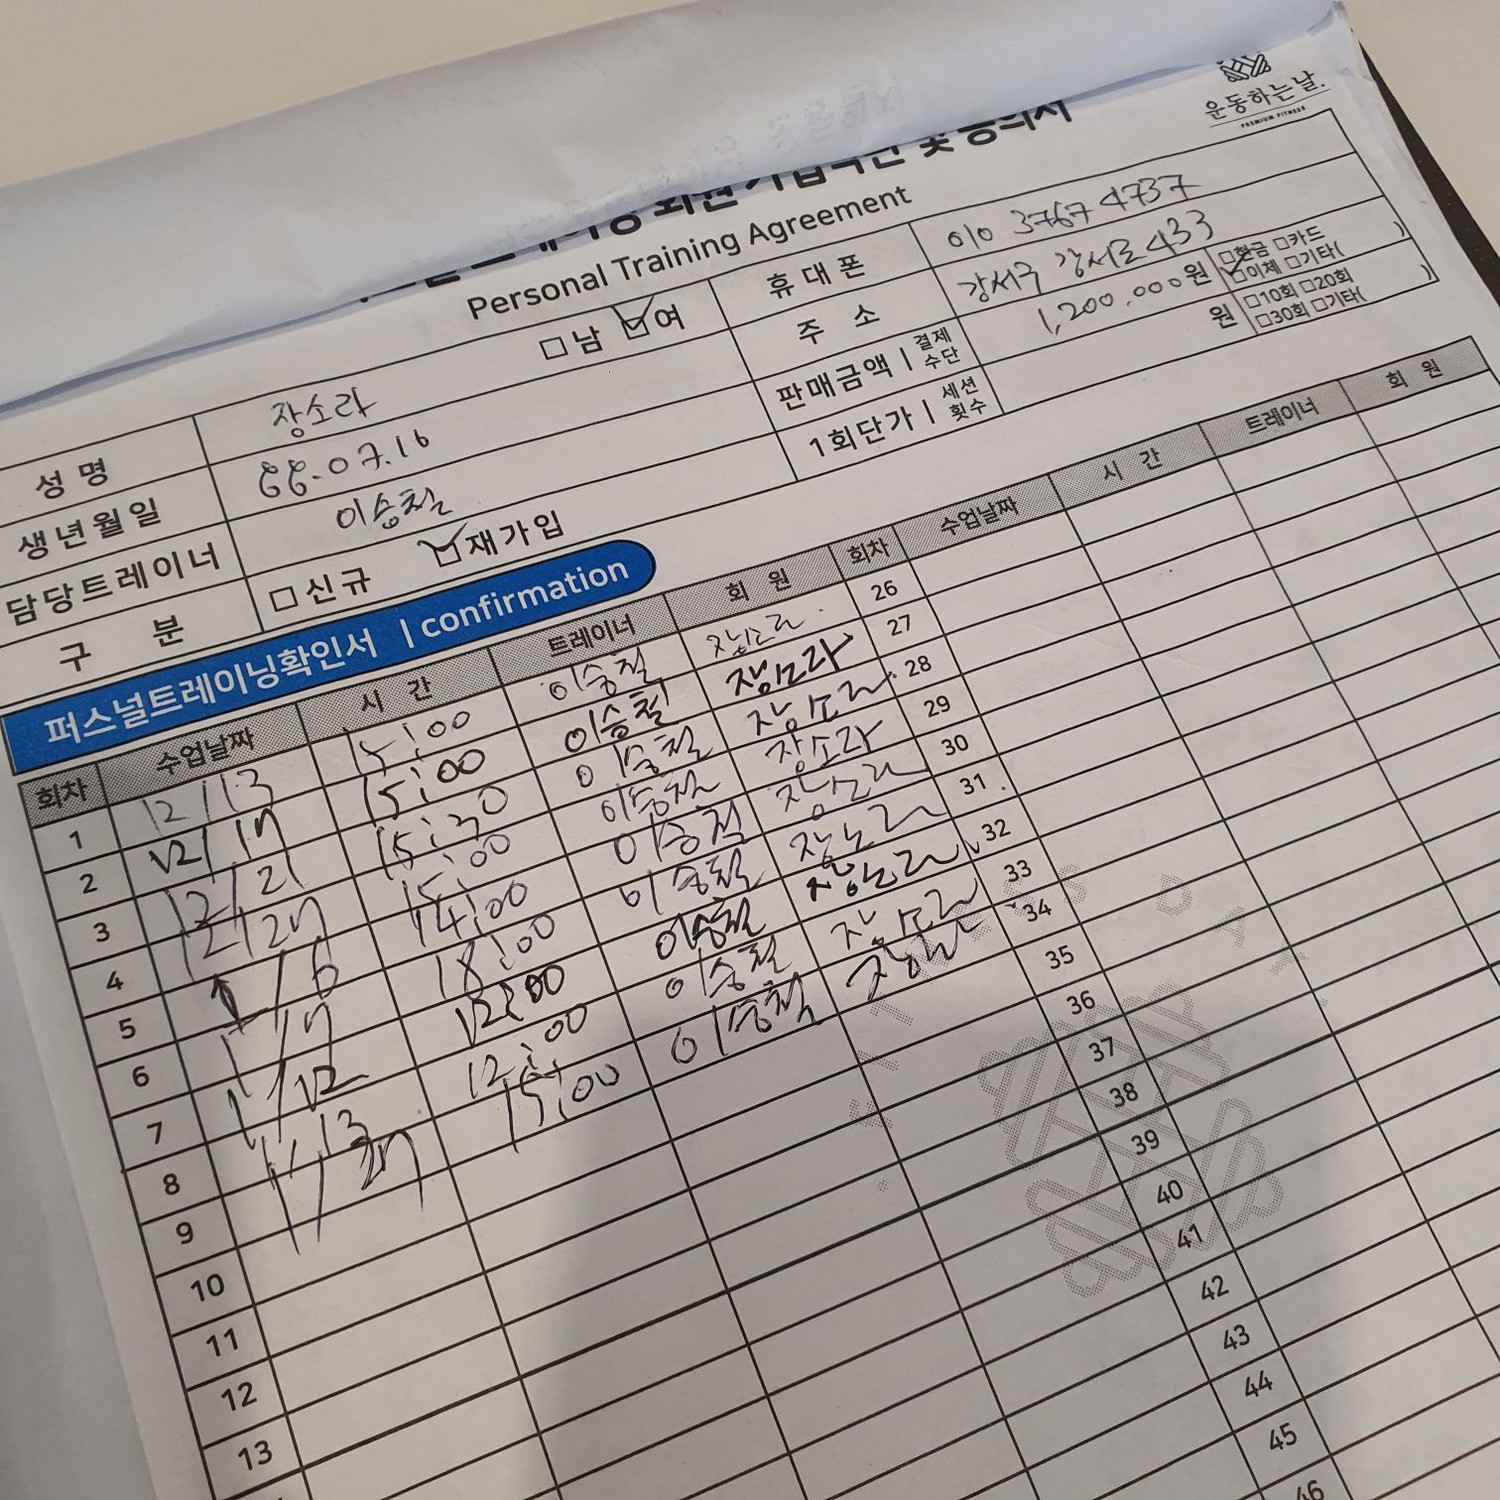 운동하는날.
PREMIUM FITNESS
Personal Training Agreement
성명 장소라 □남 ☑여 휴대폰 010 3767 4737
생년월일 88.07.16 주소 강서구 강서로 433
담당트레이너 이승철 판매금액 | 결제수단 1,200,000원 □현금 □카드 ☑이체 □기타( )
구분 □신규 ☑재가입 1회단가 | 세션횟수 원 □10회 □20회 □30회 □기타( )
퍼스널트레이닝확인서 | confirmation
회차 수업날짜 시간 트레이너 회원 회차 수업날짜 시간 트레이너 회원
1 12/13 15:00 이승철 장소라 26
2 12/17 15:00 이승철 장소라 27
3 12/21 15:30 이승철 장소라 28
4 12/27 15:00 이승철 장소라 29
5 1/6 14:00 이승철 장소라 30
6 1/7 18:00 이승철 장소라 31
7 1/12 12:00 이승철 장소라 32
8 1/13 12:00 이승철 장소라 33
9 1/27 15:00 이승철 34
10 35
11 36
12 37
13 38
39
40
41
42
43
44
45
46